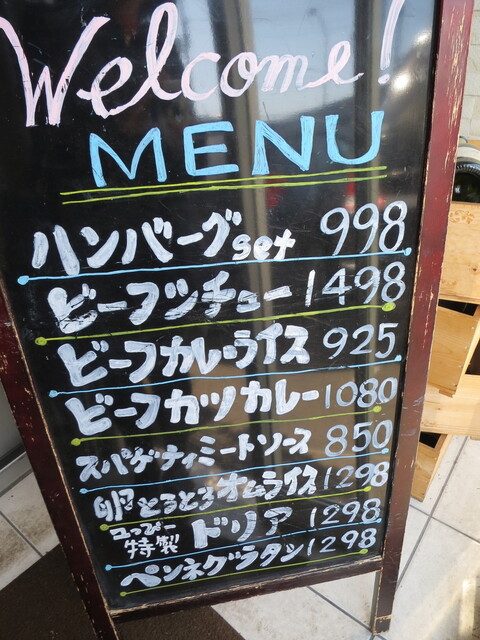 Welcome!
MENU
ハンバーグset 998
ビーフシチュー 1498
ビーフカレーライス 925
ビーフカツカレー 1080
スパゲティミートソース 850
卵とろとろオムライス 1298
コッピー特製 ドリア 1298
ペンネグラタン 1298